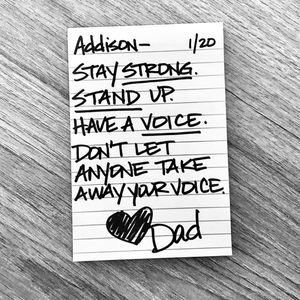 Addison- 1/20
STAY STRONG.
STAND UP.
HAVE A VOICE.
DON'T LET
ANYONE TAKE
AWAY YOUR VOICE.
Dad